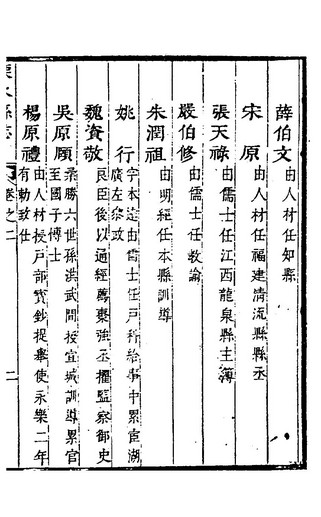 薛伯文 由人材任知縣
宋原 由人材任福建清流縣縣丞
張天祿 由儒士任江西龍泉縣主簿
嚴伯修 由儒士任教諭
朱潤祖 由明經任本縣訓導
姚行 字本達由儒士任戶科給事中累官湖
廣左叅政
魏資敬 良臣後以通經薦棗強丞擢監察御史
吳原頤 柔勝六世孫洪武間授宣城訓導累官
至國子博士
楊原禮 由人材授戶部寶鈔提舉使永樂二年
有勅致仕
水縣志
卷之二
二